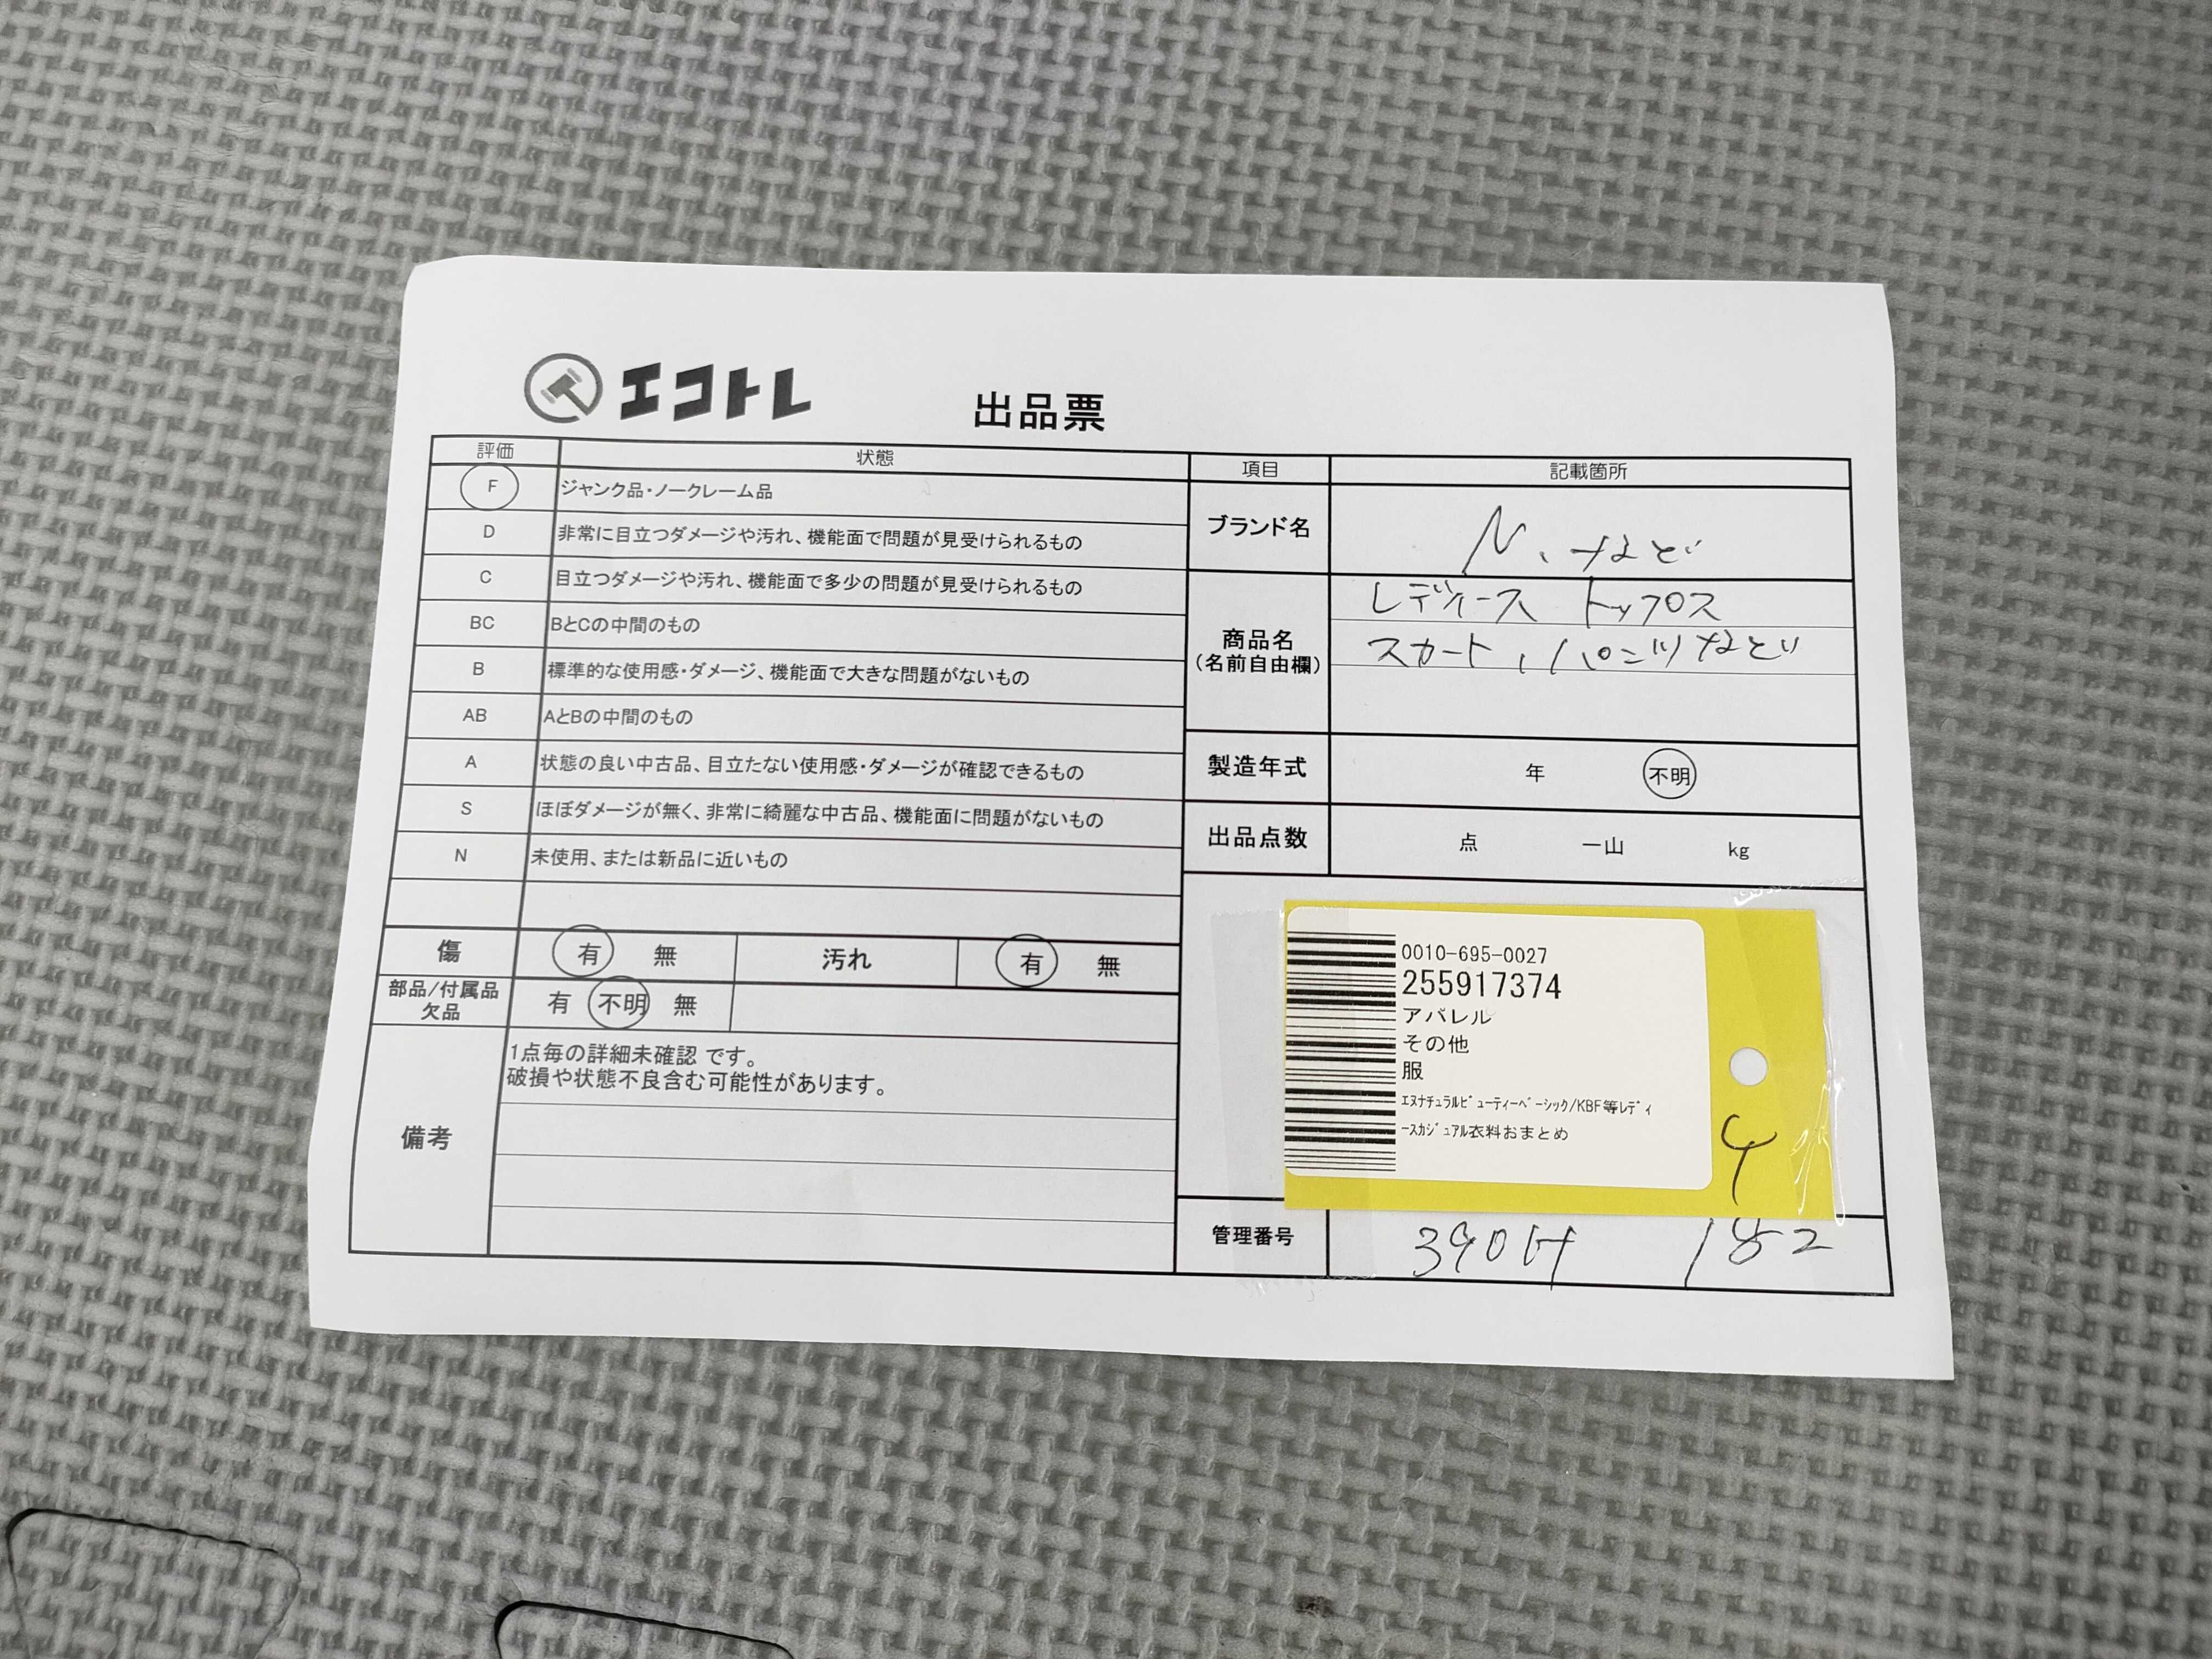 エコトレ
出品票
評価 状態
F ジャンク品・ノークレーム品
D 非常に目立つダメージや汚れ、機能面で問題が見受けられるもの
C 目立つダメージや汚れ、機能面で多少の問題が見受けられるもの
BC BとCの中間のもの
B 標準的な使用感・ダメージ、機能面で大きな問題がないもの
AB AとBの中間のもの
A 状態の良い中古品、目立たない使用感・ダメージが確認できるもの
S ほぼダメージが無く、非常に綺麗な中古品、機能面に問題がないもの
N 未使用、または新品に近いもの
傷 有 無 汚れ 有 無
部品/付属品
欠品 有 不明 無
備考
1点毎の詳細未確認 です。
破損や状態不良含む可能性があります。
項目 記載箇所
ブランド名 N、など
商品名
(名前自由欄)
レディース トップス
スカート、パンツなど
製造年式 年 不明
出品点数 点 一山 kg
0010-695-0027
255917374
アパレル
その他
服
ｴﾇﾅﾁｭﾗﾙﾋﾞｭｰﾃｨｰﾍﾞｰｼｯｸ/KBF等ﾚﾃﾞｨ
ｰｽｶｼﾞｭｱﾙ衣料おまとめ
管理番号 182